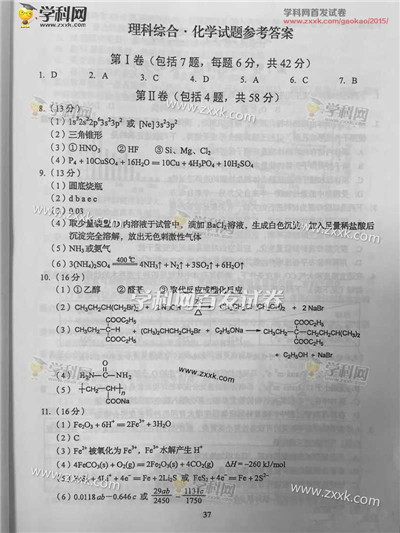 学科网
www.zxxk.com
学科网首发试卷
www.zxxk.com/gaokao/2015/
理科综合·化学试题参考答案
第Ⅰ卷（包括7题，每题6分，共42分）
1. D 2. A 3. C 4. D 5. C 6. C 7. B
第Ⅱ卷（包括4题，共58分）
8.（13分）
（1）1s²2s²2p⁶3s²3p² 或 [Ne]3s²3p²
（2）三角锥形
（3）① HNO₃ ② HF ③ Si、Mg、Cl₂
（4）P₄ + 10CuSO₄ + 16H₂O = 10Cu + 4H₃PO₄ + 10H₂SO₄
9.（13分）
（1）圆底烧瓶
（2）d b a e c
（3）0.03
（4）取少量装置D内溶液于试管中，滴加BaCl₂溶液，生成白色沉淀，加入足量稀盐酸后
沉淀完全溶解，放出无色刺激性气体
（5）NH₃或氨气
（6）3(NH₄)₂SO₄ 400℃ 4NH₃↑ + N₂↑ + 3SO₂↑ + 6H₂O↑
10.（16分）
（1）① 乙醇 ② 醛基 ③ 取代反应或酯化反应
（2）CH₃CH₂CH(CH₂Br)₂ + 2 NaBr
学科网首发试卷
（3）CH₃CH₂-C-H + (CH₃)₂CHCH₂CH₂Br + C₂H₅ONa
COOC₂H₅
C₂H₅OH + NaBr
（4）H₂N-C-NH₂
www.zxxk.com
（5）
COONa
11.（16分）
（1）Fe₂O₃ + 6H⁺ = 2Fe³⁺ + 3H₂O
（2）C
（3）Fe²⁺被氧化为Fe³⁺，Fe³⁺水解产生H⁺
（4）4FeCO₃(s) + O₂(g) = 2Fe₂O₃(s) + 4CO₂(g) ΔH= -260 kJ/mol
（5）FeS₂ + 4Li⁺ + 4e⁻ = Fe + 2Li₂S 或 FeS₂ + 4e⁻ = Fe + 2S²⁻
（6）0.0118 ab - 0.646 c 或 29ab/2450 - 113c/1750
37
学科网
zxxk.com